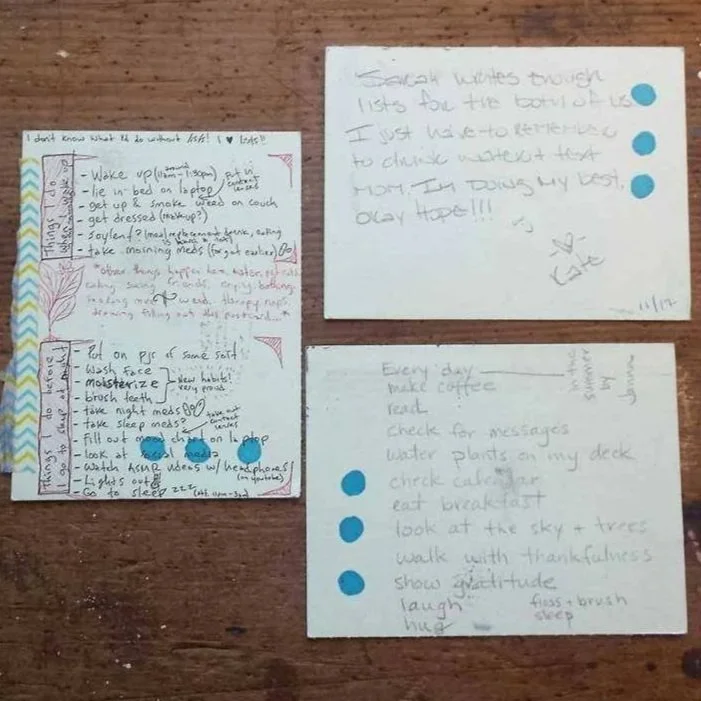 I don't know what I'd do without lists! I ♥ lists!!
Things I do when I wake up
- Wake up (around 11am-1:30pm)
- lie in bed on laptop
put in contact lenses
- get up & smoke weed on couch
- get dressed (makeup?)
- soylent? (meal replacement drink, eating is hard)
- take morning meds (forgot earlier)
*other things happen here, water,
eating, seeing friends, crying, bathing,
weed, therapy, naps,
drawing, filling out this postcard...*
Things I do before I go to sleep at night
- Put on pjs of some sort
- Wash face
- moisterize
- brush teeth
New habits! very proud
- take night meds
- take sleep meds?
take out contact lenses
- Fill out mood chart on laptop
- look at social media
- Watch ASMR videos w/ headphones
(on youtube)
- Lights out
- Go to sleep zzz
Sarah writes enough
lists for the both of us.
I just have to remember
to drink water + text
mom. I'm doing my best,
okay Hope!!!
:)
Kate
11/17
Every day
in the summer by
make coffee
read
check for messages
water plants on my deck
check calendar
eat breakfast
look at the sky + trees
walk with thankfulness
show gratitude
laugh
hug
floss + brush
sleep